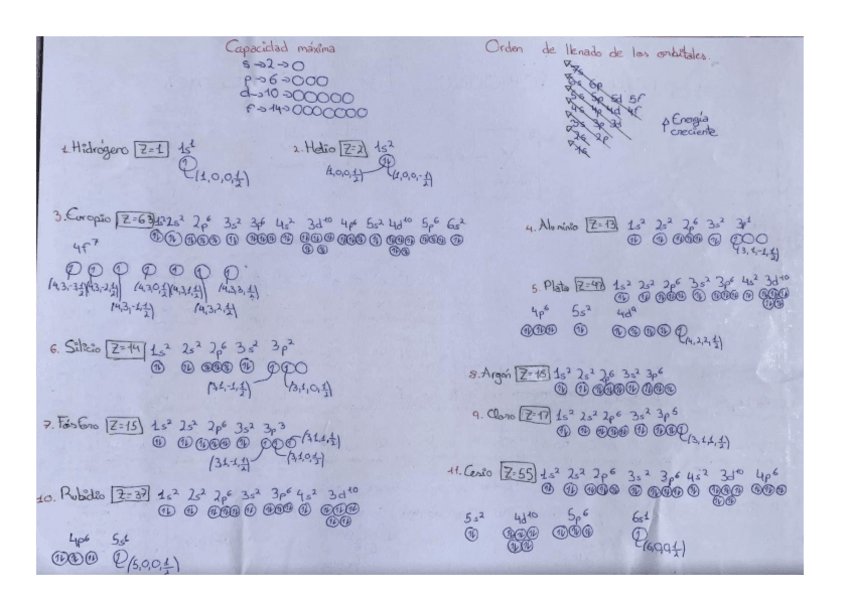 Capacidad máxima
s→2→○
p→6→○○○
d→10→○○○○○
f→14→○○○○○○○
Orden de llenado de los orbitales.
7s
6s 6p
5s 5p 5d 5f
4s 4p 4d 4f
3s 3p 3d
2s 2p
1s
Energía
creciente
1. Hidrógeno Z=1 1s¹
(1,0,0,½)
2. Helio Z=2 1s²
(1,0,0,½) (1,0,0,-½)
3. Europio Z=63 1s² 2s² 2p⁶ 3s² 3p⁶ 4s² 3d¹⁰ 4p⁶ 5s² 4d¹⁰ 5p⁶ 6s²
4f⁷
(4,3,-3,½) (4,3,-2,½) (4,3,0,½) (4,3,1,½) (4,3,3,½)
(4,3,-1,½) (4,3,2,½)
4. Aluminio Z=13 1s² 2s² 2p⁶ 3s² 3p¹
(3,1,-1,½)
5. Plata Z=47 1s² 2s² 2p⁶ 3s² 3p⁶ 4s² 3d¹⁰
4p⁶ 5s² 4d⁹
(4,2,2,½)
6. Silicio Z=14 1s² 2s² 2p⁶ 3s² 3p²
(3,1,-1,½) (3,1,0,½)
7. Fósforo Z=15 1s² 2s² 2p⁶ 3s² 3p³
(3,1,1,½)
(3,1,-1,½) (3,1,0,½)
8. Argón Z=18 1s² 2s² 2p⁶ 3s² 3p⁶
9. Cloro Z=17 1s² 2s² 2p⁶ 3s² 3p⁵
(3,1,1,½)
10. Rubidio Z=37 1s² 2s² 2p⁶ 3s² 3p⁶ 4s² 3d¹⁰
4p⁶ 5s¹
(5,0,0,½)
11. Cesio Z=55 1s² 2s² 2p⁶ 3s² 3p⁶ 4s² 3d¹⁰ 4p⁶
5s² 4d¹⁰ 5p⁶ 6s¹
(6,0,0,½)